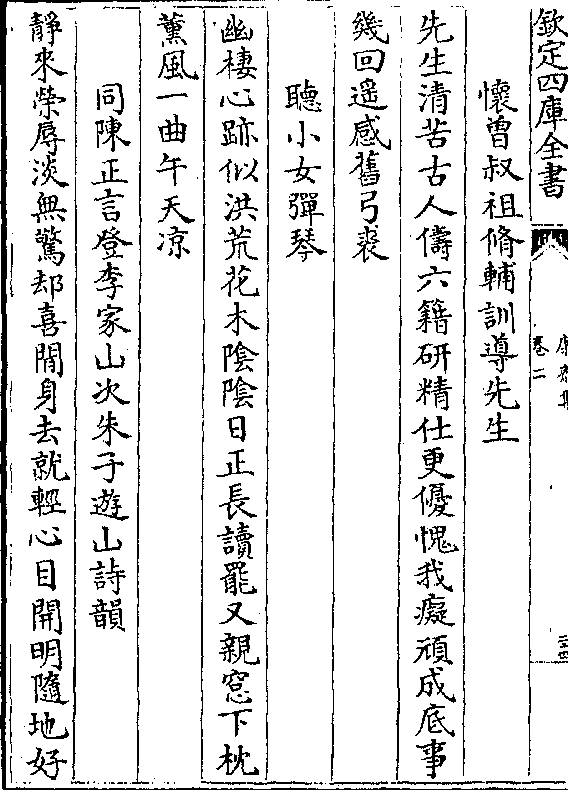 欽定四庫全書
康齋集
卷二
懷曽叔祖脩輔訓導先生
先生清苦古人儔六籍研精仕更優愧我癡頑成底事
幾回遥感舊弓裘
聽小女彈琴
幽棲心跡似洪荒花木陰陰日正長讀罷又親窓下枕
薫風一曲午天凉
同陳正言登李家山次朱子遊山詩韻
靜來榮辱淡無驚却喜閒身去就輕心目開明隨地好